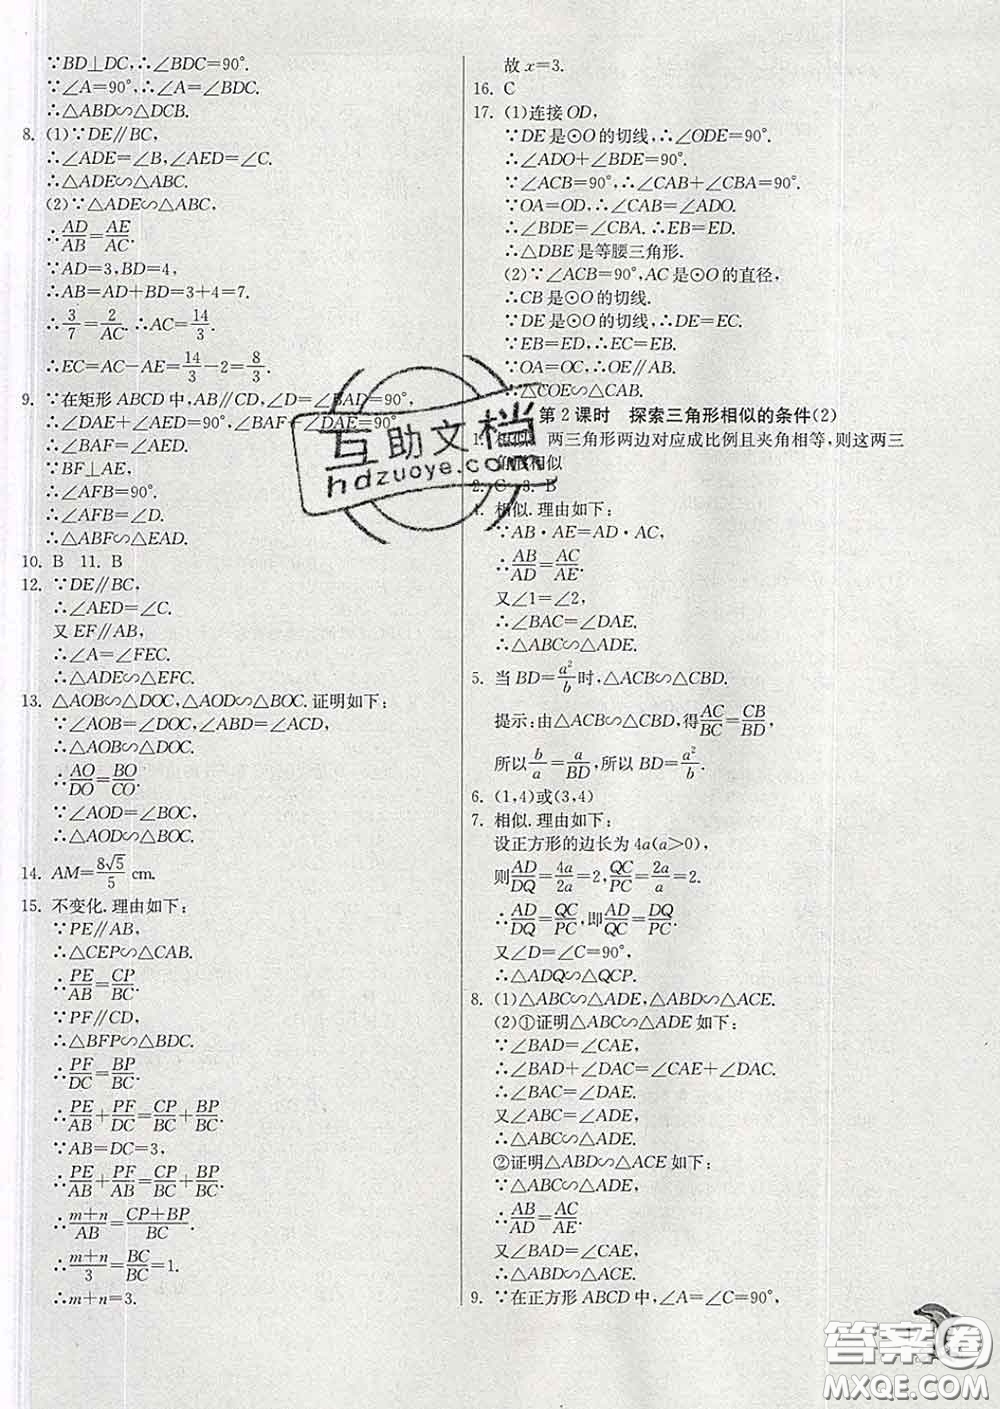 ∵BD⊥DC,∴∠BDC=90°.
∵∠A=90°,∴∠A=∠BDC.
∴△ABD∽△DCB.
8. (1)∵DE∥BC,
∴∠ADE=∠B,∠AED=∠C.
∴△ADE∽△ABC.
(2)∵△ADE∽△ABC,
∴AD/AB=AE/AC.
∵AD=3,BD=4,
∴AB=AD+BD=3+4=7.
∴3/7=2/AC.∴AC=14/3.
∴EC=AC-AE=14/3-2=8/3.
9. ∵在矩形ABCD中,AB∥CD,∠D=∠BAD=90°,
∴∠DAE+∠AED=90°,∠BAF+∠DAE=90°.
∴∠BAF=∠AED.
∵BF⊥AE,
∴∠AFB=90°.
∴∠AFB=∠D.
∴△ABF∽△EAD.
10. B 11. B
12. ∵DE∥BC,
∴∠AED=∠C.
又EF∥AB,
∴∠A=∠FEC.
∴△ADE∽△EFC.
13. △AOB∽△DOC,△AOD∽△BOC.证明如下:
∵∠AOB=∠DOC,∠ABD=∠ACD,
∴△AOB∽△DOC.
∴AO/DO=BO/CO.
∵∠AOD=∠BOC,
∴△AOD∽△BOC.
14. AM=8√5/5 cm.
15. 不变化.理由如下:
∵PE∥AB,
∴△CEP∽△CAB.
∴PE/AB=CP/BC.
∵PF∥CD,
∴△BFP∽△BDC.
∴PF/DC=BP/BC.
∴PE/AB+PF/DC=CP/BC+BP/BC.
∵AB=DC=3,
∴PE/AB+PF/AB=CP/BC+BP/BC.
∴m+n/AB=CP+BP/BC.
∴m+n/3=BC/BC=1.
∴m+n=3.
故x=3.
16. C
17. (1)连接OD,
∵DE是⊙O的切线,∴∠ODE=90°.
∴∠ADO+∠BDE=90°.
∵∠ACB=90°,∴∠CAB+∠CBA=90°.
∵OA=OD,∴∠CAB=∠ADO.
∴∠BDE=∠CBA.∴EB=ED.
∴△DBE是等腰三角形.
(2)∵∠ACB=90°,AC是⊙O的直径,
∴CB是⊙O的切线.
∵DE是⊙O的切线,∴DE=EC.
∵EB=ED,∴EC=EB.
∵OA=OC,∴OE∥AB.
∴△COE∽△CAB.
第2课时 探索三角形相似的条件(2)
1. 相似 两三角形两边对应成比例且夹角相等,则这两三
角形相似
2. C 3. B
4. 相似.理由如下:
∵AB·AE=AD·AC,
∴AB/AD=AC/AE.
又∠1=∠2,
∴∠BAC=∠DAE.
∴△ABC∽△ADE.
5. 当BD=a²/b时,△ACB∽△CBD.
提示:由△ACB∽△CBD,得AC/BC=CB/BD,
所以b/a=a/BD,所以BD=a²/b.
6. (1,4)或(3,4)
7. 相似.理由如下:
设正方形的边长为4a(a>0),
则AD/DQ=4a/2a=2,QC/PC=2a/a=2.
∴AD/DQ=QC/PC,即AD/QC=DQ/PC.
又∠D=∠C=90°,
∴△ADQ∽△QCP.
8. (1)△ABC∽△ADE,△ABD∽△ACE.
(2)①证明△ABC∽△ADE如下:
∵∠BAD=∠CAE,
∴∠BAD+∠DAC=∠CAE+∠DAC.
∴∠BAC=∠DAE.
又∠ABC=∠ADE,
∴△ABC∽△ADE.
②证明△ABD∽△ACE如下:
∵△ABC∽△ADE,
∴AB/AD=AC/AE.
又∠BAD=∠CAE,
∴△ABD∽△ACE.
9. ∵在正方形ABCD中,∠A=∠C=90°,
互助文档
hdzuoye.com
答案卷
MXQE.COM